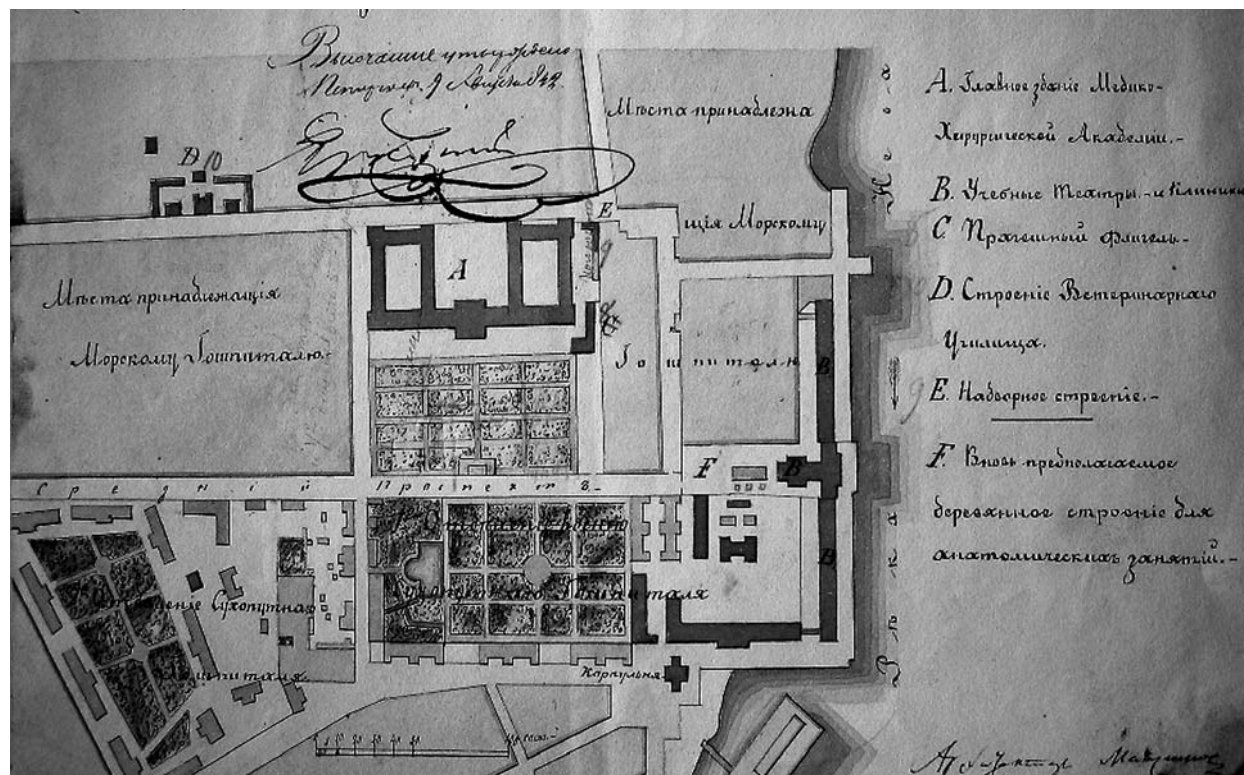 Высочайше утверждено
Петергоф 9 Августа 1842
Мѣста принадлежа
щія Морскому
Гошпиталю
D 10
E
A
9
8
Мѣста принадлежащія
Морскому Гошпиталю.
B
F
B
B
Средній Проспектъ.
1е Отдѣленіе
Сухопутнаго Гошпиталя
Отдѣленіе Сухопутнаго
Гошпиталя
Караульня
Рѣка Нева
A. Главное зданіе Медико-
Хирургической Академіи.-
B. Учебные Театры и Клиники
C. Прачешный флигель.-
D. Строеніе Ветеринарнаго
Училища.
E. Надворное строеніе.-
F. Вновь предполагаемое
деревянное строеніе для
анатомическихъ занятій.-
Архитекторъ